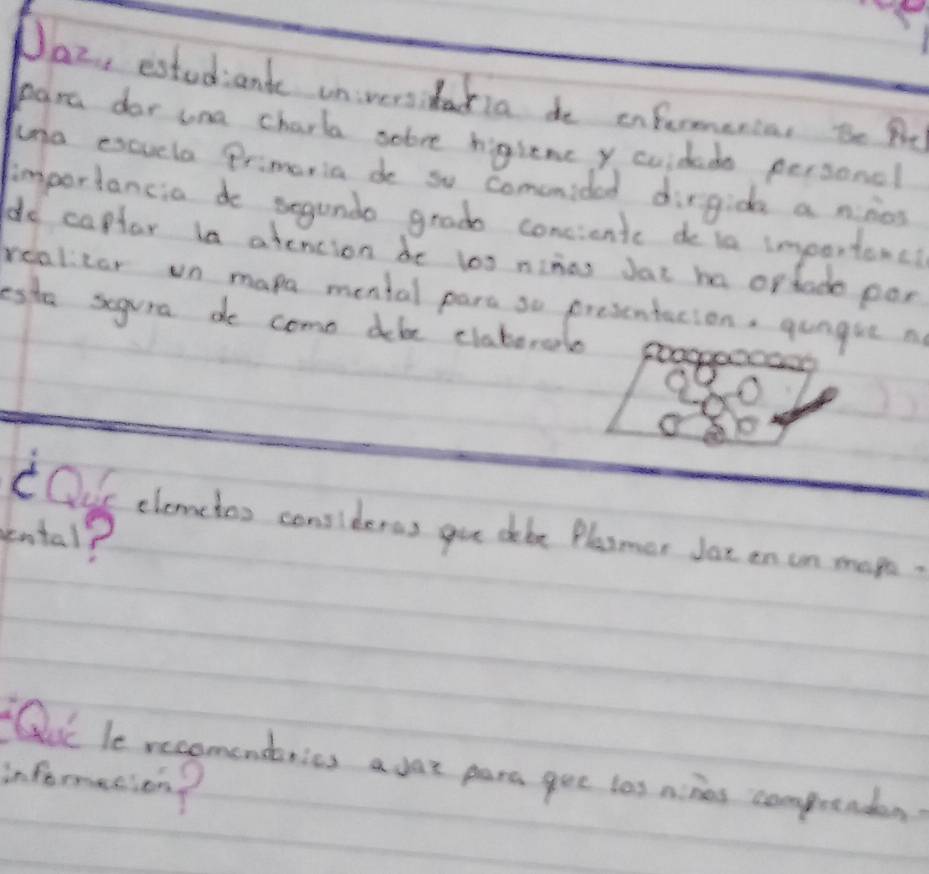 Jaz, estudiante universitaria de enfermeria. Se
para dar una charla sobre higiene y cuidado personal
una escuela Primaria de su comunidad dirigida a niños
importancia de segundo grado conciente de la importanci
de captar la atencion de los niños Jaz ha optado por
realizar un mapa mental para su presentacion. aunque no
esta segura de como debe elaborarlo
¿Qué elemetos consideras que debe Plasmar Jaz en un mapa -
ental?
¿Qué le recomendarias a Jaz para que los niños comprendan -
información?